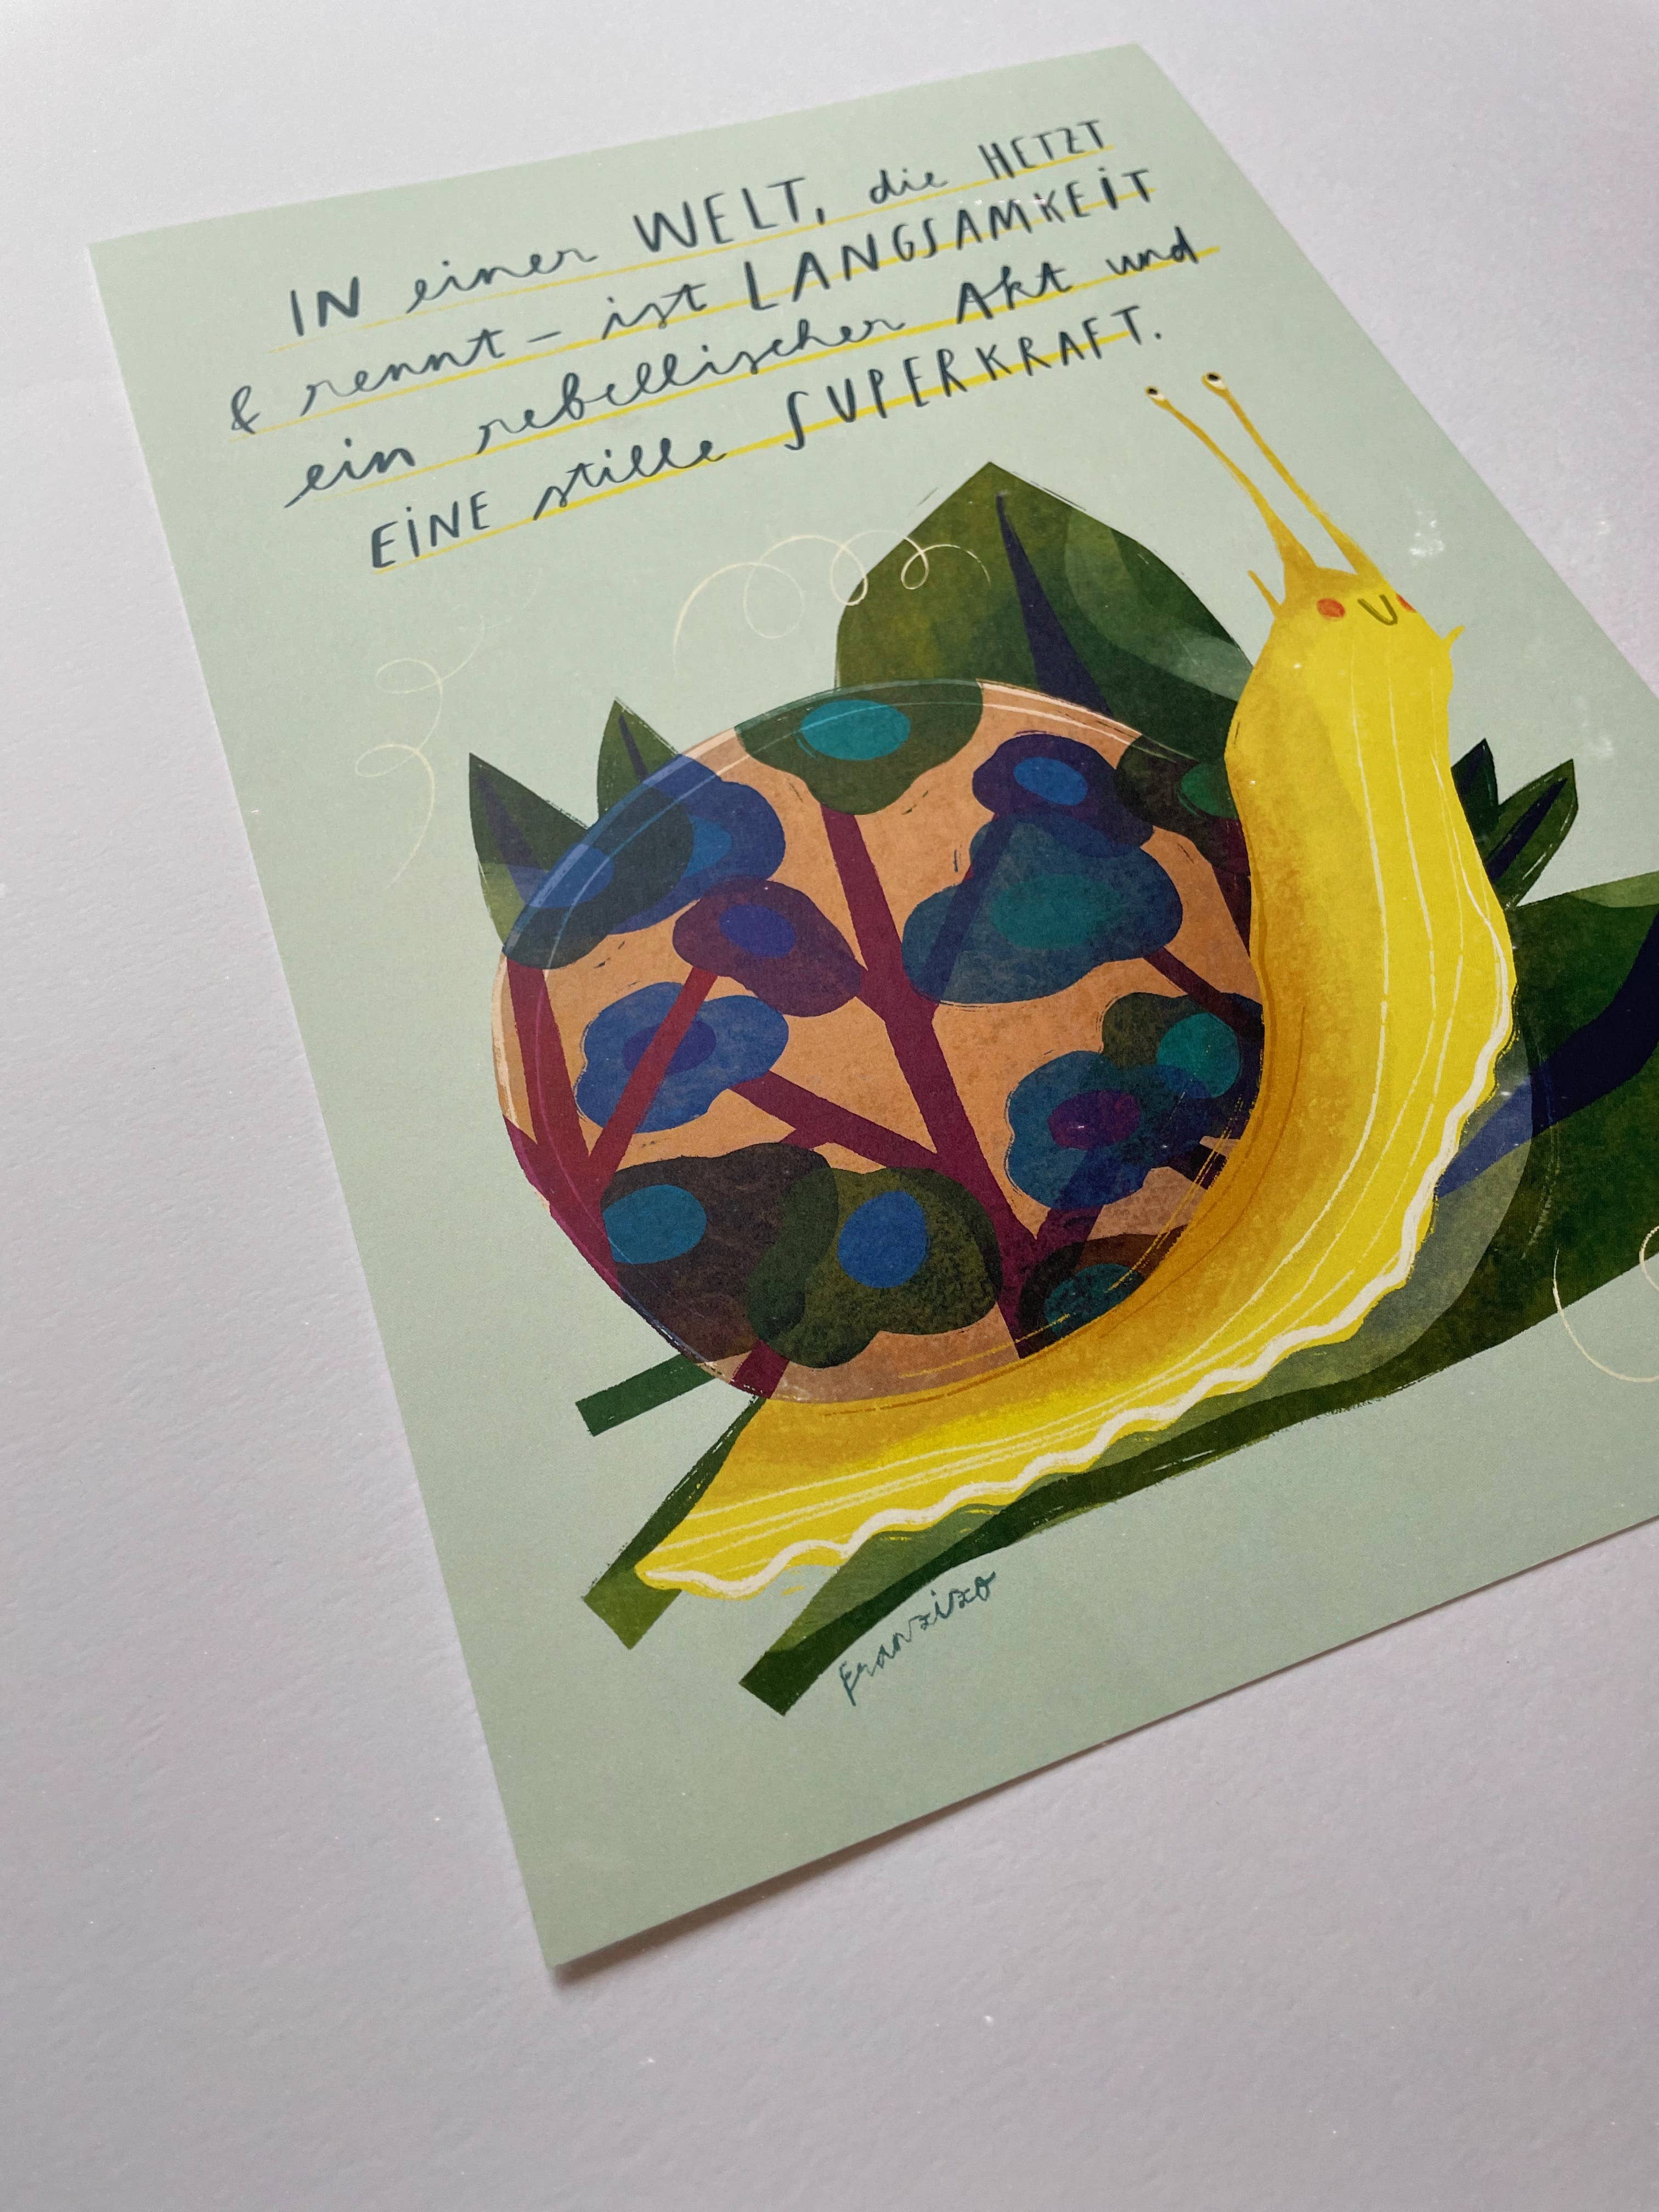 IN einer WELT, die HETZT
& rennt – ist LANGSAMKEIT
ein rebellischer Akt und
EINE stille SUPERKRAFT.
Franzizo